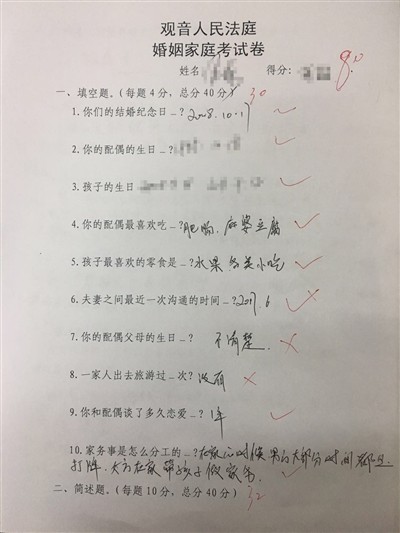 观音人民法庭
婚姻家庭考试卷
姓名 得分: 80
一、填空题。(每题4分，总分40分) 30
1.你们的结婚纪念日_? 2008.10.17
2.你的配偶的生日_?
3.孩子的生日
4.你的配偶最喜欢吃_? 肥肠、麻婆豆腐
5.孩子最喜欢的零食是_? 水果 各类小吃
6.夫妻之间最近一次沟通的时间_? 2017.6
7.你的配偶父母的生日_? 不清楚.
8.一家人出去旅游过_次? 没有
9.你和配偶谈了多久恋爱_? 1年
10.家务事是怎么分工的_? 在家的时候 男的大部分时间都是
打牌. 女方在家带孩子做家务.
二、简述题。(每题10分，总分40分) 32